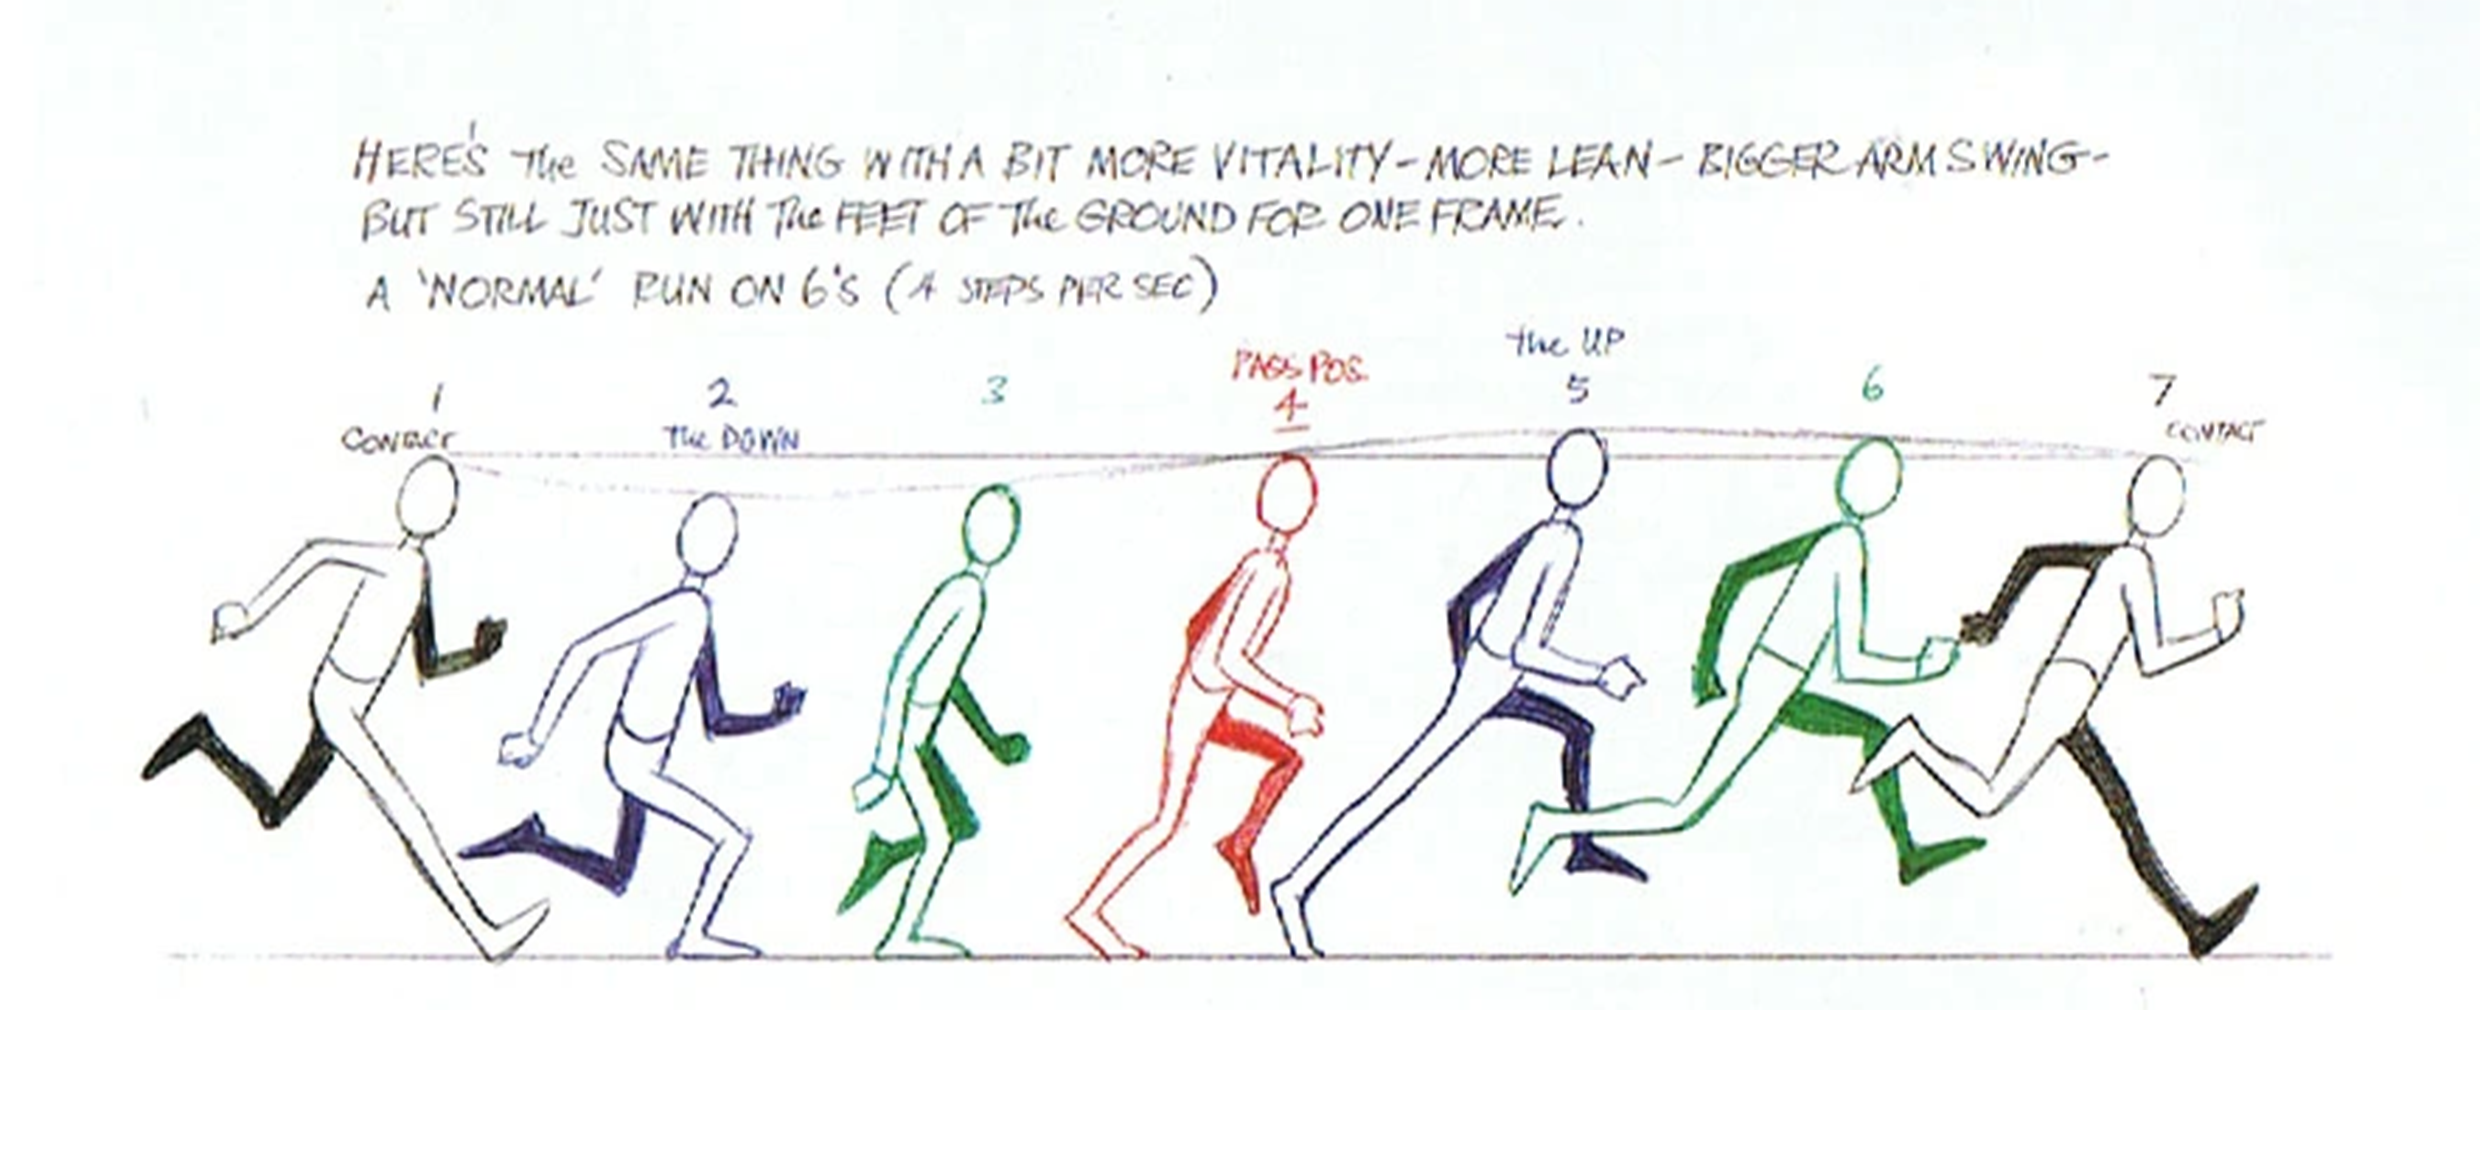 HERE'S The SAME THING WITH A BIT MORE VITALITY - MORE LEAN - BIGGER ARM SWING -
BUT STILL JUST WITH The FEET OF The GROUND FOR ONE FRAME.
A 'NORMAL' RUN ON 6'S (4 STEPS PER SEC)
the UP
PASS POS.
1 2 3 4 5 6 7
CONTACT The DOWN CONTACT